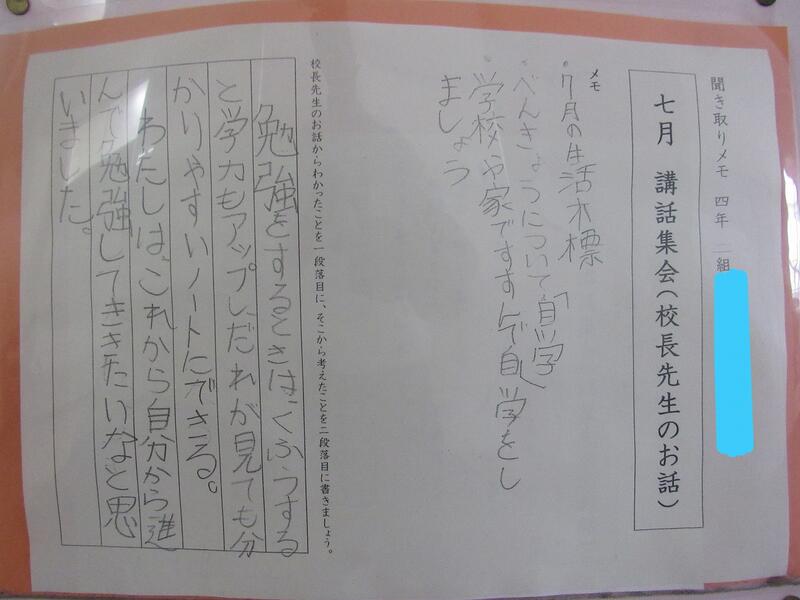 聞き取りメモ 四年 二組
七月 講話集会(校長先生のお話)
メモ
・7月の生活木標
・べんきょうについて「自学」
・学校や家ですすんで自学をし
ましょう
校長先生のお話からわかったことを一段落目に、そこから考えたことを二段落目に書きましょう。
勉強をするときは、くふうする
と学力もアップし、だれが見ても分
かりやすいノートにできる。
わたしは、これから自分から進
んで勉強してききたいなと思
いました。